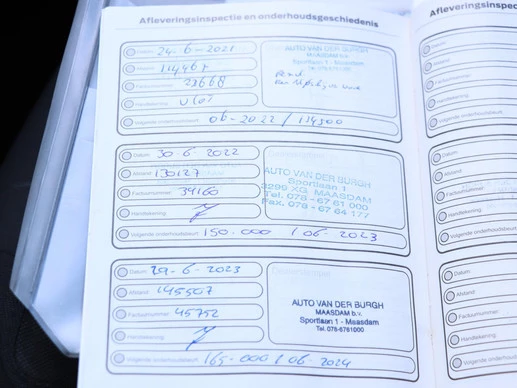 Afleveringsinspectie en onderhoudsgeschiedenis
Datum 24-6-2021
Afstand
Factuurnummer
Handtekening
Volgende onderhoudsbeurt 06-2022 /
AUTO VAN DER BURGH
MAASDAM b.v.
Sportlaan 1 - Maasdam
Datum 30-6-2022
Afstand 130127
Factuurnummer 34160
Handtekening
Volgende onderhoudsbeurt 150.000 / 06-2023
AUTO VAN DER BURGH
Sportlaan 1
3299 XG MAASDAM
Tel. 078 - 67 61 000
Fax. 078 - 67 64 177
Datum 29-6-2023
Afstand 145507
Factuurnummer 45752
Handtekening
Volgende onderhoudsbeurt 165-000 / 06-2024
AUTO VAN DER BURGH
MAASDAM b.v.
Sportlaan 1 - Maasdam
Tel. 078-6761000
Afleveringsinspectie
Datum
Afstand
Factuurnummer
Handtekening
Volgende onderhoudsbeurt
Datum
Afstand
Factuurnummer
Handtekening
Volgende onderhoudsbeurt
Datum
Afstand
Factuurnummer
Handtekening